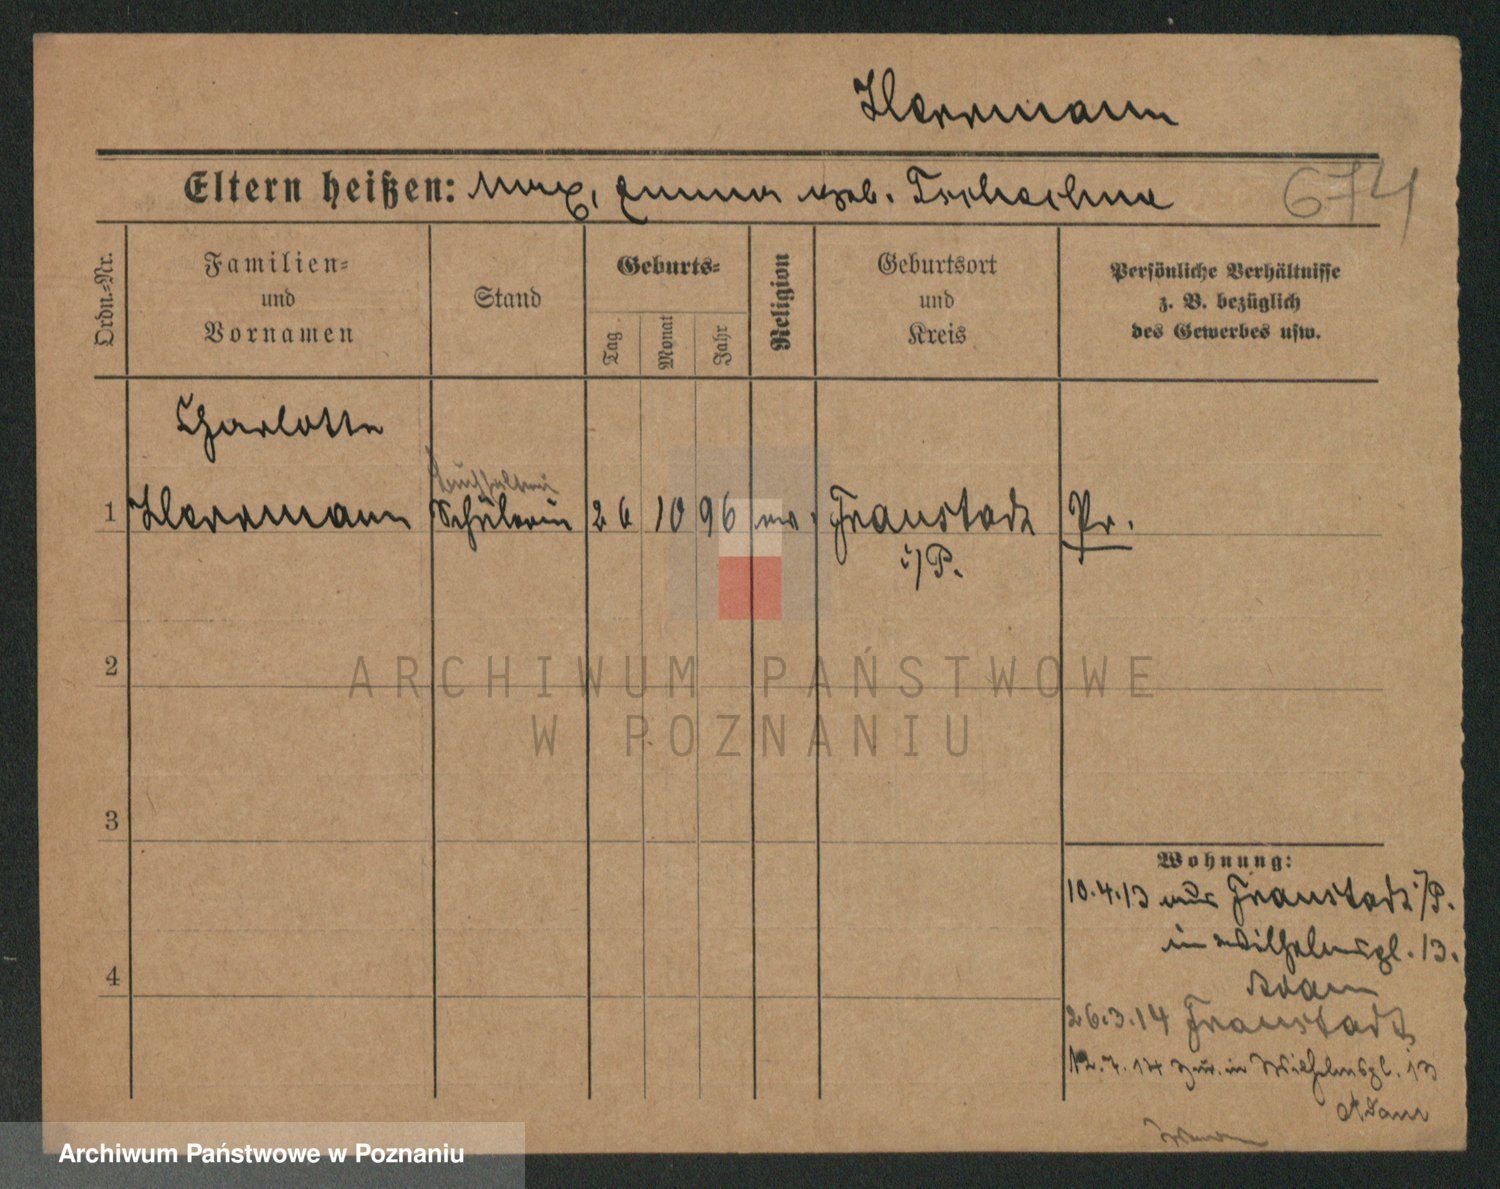 Herrmann
Eltern heißen: Max, Emma geb. Tschache
674
Ordn.-Nr.
Familien-
und
Vornamen
Stand
Geburts-
Tag
Monat
Jahr
Religion
Geburtsort
und
Kreis
Persönliche Verhältnisse
z. B. bezüglich
des Gewerbes usw.
Charlotte
Buchhalterin
1 Herrmann Schülerin 26 10 96 ev. Fraustadt Pr.
i/P.
2
ARCHIWUM PAŃSTWOWE
W POZNANIU
3
4
Wohnung:
10.4.13 aus Fraustadt i/P.
in Wilhelmspl. 13.
Adam
26.3.14 Fraustadt
12.7.14 zur. in Wilhelmspl. 13
Adam
Archiwum Państwowe w Poznaniu